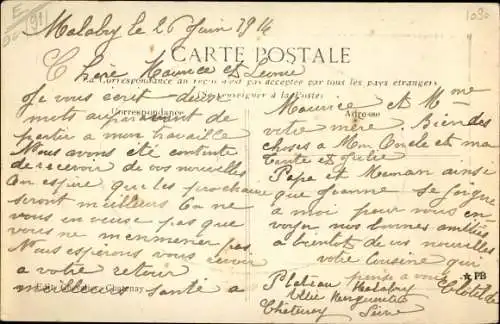 Malabry le 26 Juin 1914
1030
CARTE POSTALE
Chère Maurice et Léonie
La Correspondance au recto n'est pas acceptée par tous les pays étrangers
(Se renseigner à la Poste)
Correspondance
Adresse
Je vous écrit deux
mots aujourd'hui avant de
partir a mon travaille
Nous avons été contente
de recevoir de vos nouvelles
On espère que les prochaine
seront meilleurs On ne
vous en veuse pas que
vous ne m'enmener pas
Nous espérons vous revoir
a votre retour
meilleures santé a
Maurice et Mme
votre mère. Bien des
choses a Mon Oncle et ma
tante et
Papa et Maman ainsi
que Jeanne se joigne
a moi pour vous en
voyer nos bonnes amitiés
a bientôt de vos nouvelles
votre cousine qui
pense a vous
Clotilde
Plateau Malabry
Allée Marguerite
Châtenay Seine
PB